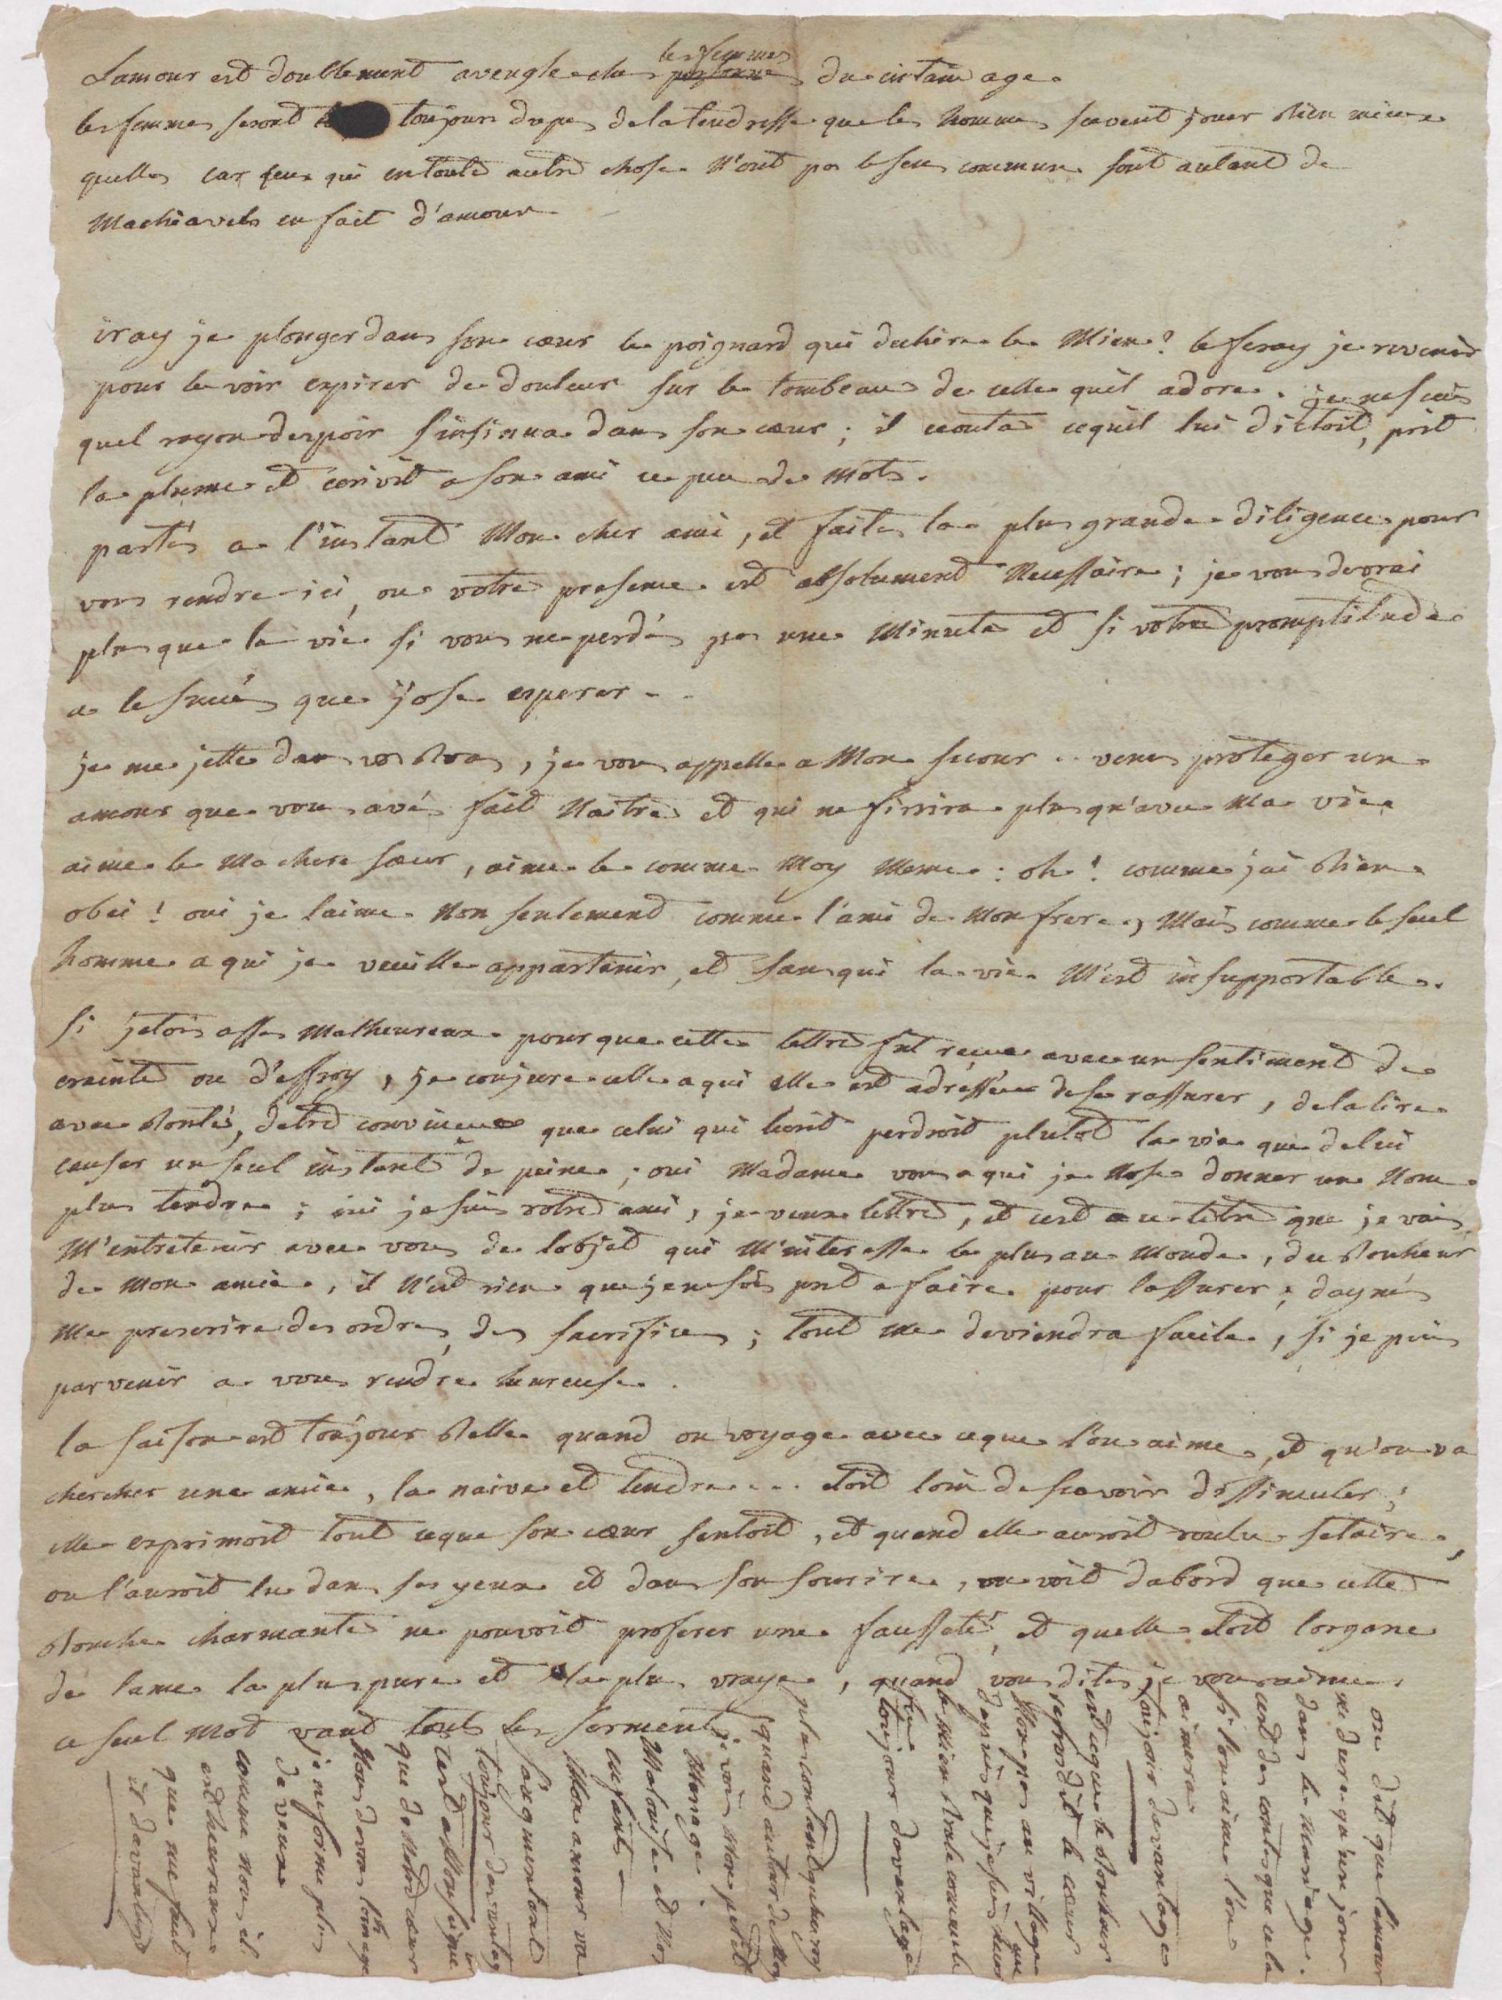 Lamour est doublement aveugle ches les femmes personnes du certain age.
les femmes seront toujours dupes de la tendresse que les hommes scavent jouer bien mieux
quelles car ceux qui en toute autre chose N'ont pas le sens commun sont autant de
Machiavels en fait d'amour
iray je plonger dans son cœur le poignard qui dechire le Mien? le feray je revenir
pour le voir expirer de douleur sur le tombeau de celle quil adore. je ne scais
quel rayon despoir s'insinua dans son cœur; il ecouta cequil lui dictoit, prit
la plume et écrivit a son ami ce peu de mots.
partés a l'instant Mon cher ami, et faites la plus grande diligence pour
vous rendre ici, ou votre presence est absolument Necessaire; je vous devrai
plus que la vie si vous ne perdés pas une Minute et si votre promptitude
a le succés que j'ose esperer..
je me jette dans vos bras, je vous appelle a Mon secour.. venes proteger un
amour que vous avés fait Naitre et qui ne finira plus qu'avec Ma vie
aime le Ma chere sœur, aime le comme Moy Meme: oh! comme j'ai bien
obei! oui je laime Non seulement comme l'ami de Mon frere, Mais comme le seul
homme a qui je veuille appartenir, et sans qui la vie M'est insupportable.
Si jetois asses Malheureux pour que cette lettre fut reçue avec un sentiment de
crainte ou d'effroy, je conjure celle a qui elle est adréssée de se rassurer, de la lire
avec bontés, detre convincue que celui qui lécrit perdroit plutot la vie que de lui
causer un seul instant de peine; oui Madame vous a qui je Nose donner un Nom
plus tendre; oui je suis votre ami, je veux lettre, et cest a ce titre que je vais
M'entretenir avec vous de lobjet qui M'interesse le plus au Monde, du bonheur
de Mon amie, il N'est rien que je ne sois pret a faire pour lassurer; daignés
Me prescrire des ordres, des sacrifices; tout me deviendra facile, si je puis
parvenir a vous rendre heureuse.
la saison est toujour belle quand on voyage avec ceque l'on aime, et qu'on va
chercher une amie, la naive et tendre... etoit loin de scavoir dissimuler;
elle exprimoit tout ceque son cœur sentoit, et quand elle auroit voulu se taire,
on l'auroit lu dans ses yeux et dans son sourire, on voit dabord que cette
bouche charmante ne pouvoit proferer une fausseté, et quelle etoit lorgane
de lame la plus pure et la plus vraye, quand vous dites je vous aime,
ce seul Mot vaut tous les serments
on dit que l'amour
ne dure qu'un jour
dans le mariage.
cest des contes que cela
si l'on aime l'on
aimera
toujour davantage
est ceque le bonheur
refroidit le cœur
Non pas au village
depuis que je suis heureux
le mien brule comme le
feu
toujour davantage
plus contant quun roy
quand autour de Moy
je vois Mon petit
Menage.
Ma louise et Mes
enfants
Mon amour va
s'augmentant
toujour davantage
cest a Monseigneur
que de Notre cœur
Nous devons l'homage
je ne forme plus
de vœux
comme nous il
est heureux
que me faut
il davantage